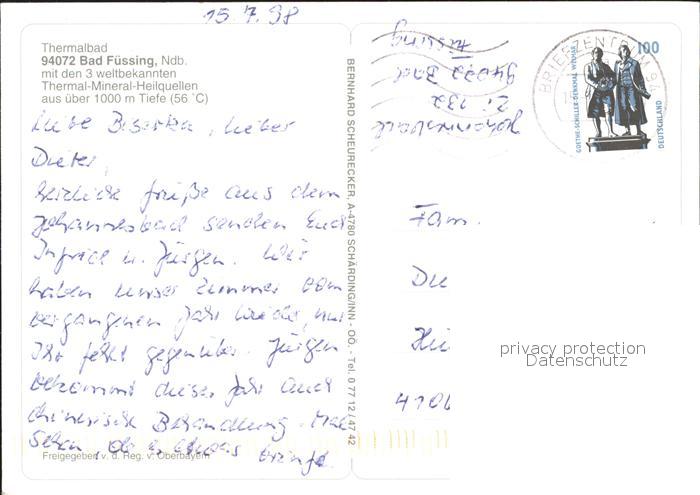 15.7.98
Thermalbad
94072 Bad Füssing, Ndb.
mit den 3 weltbekannten
Thermal-Mineral-Heilquellen
aus über 1000 m Tiefe (56 °C)
Liebe Biserka, lieber
Dieter,
herzliche Grüße aus dem
Johannesbad senden Euch
Ingrid u. Jürgen. Wir
haben unser Zimmer vom
vergangenen Jahr wieder, nur
Ihr fehlt gegenüber. Jürgen
bekommt dieses Jahr auch
chinesische Behandlung. Mal
sehen, ob es etwas bringt.
Freigegeben v. d. Reg. v. Oberbayern
BERNHARD SCHEURECKER, A-4780 SCHÄRDING/INN - OÖ. - Tel. 0 77 12 / 47 42
Johannesbad
Zi. 132
94072 Bad
Füssing
BRIEFZENTRUM 94
100
GOETHE-SCHILLER-DENKMAL WEIMAR
DEUTSCHLAND
Fam.
Di
410
privacy protection
Datenschutz